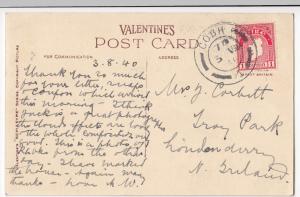 VALENTINE'S
POST CARD
FOR COMMUNICATION
ADDRESS
COBH
1 1
3.8.40
Thank you so much
for your letter, snap
& coupon which arrived
this morning. I think
yours is a great photograph
the cloud effects are lovely &
the whole composition very
good. This is a photo of
thanks from the
I have marked
the house. Again many
thanks from A.W.
Mrs J. Corbett
Troy Park
Londonderry
N. Ireland